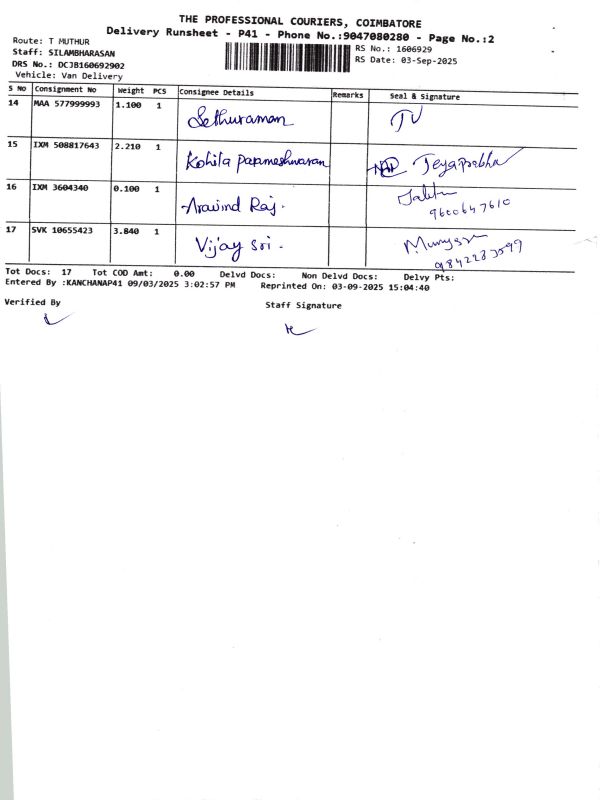 THE PROFESSIONAL COURIERS, COIMBATORE
Delivery Runsheet - P41 - Phone No.:9047080280 - Page No.:2
Route: T MUTHUR
RS No.: 1606929
Staff: SILAMBHARASAN
RS Date: 03-Sep-2025
DRS No.: DCJB160692902
Vehicle: Van Delivery
S No Consignment No Weight PCS Consignee Details Remarks Seal & Signature
14 MAA 577999993 1.100 1 Sethuraman
15 IXM 508817643 2.210 1 Kohila parameshwaran Jeyaprabha
16 IXM 3604340 0.100 1 Aravind Raj.
9600647610
17 SVK 10655423 3.840 1 Vijay sri -
Tot Docs: 17 Tot COD Amt: 0.00 Delvd Docs: Non Delvd Docs: Delvy Pts:
Entered By :KANCHANAP41 09/03/2025 3:02:57 PM Reprinted On: 03-09-2025 15:04:40
Verified By Staff Signature